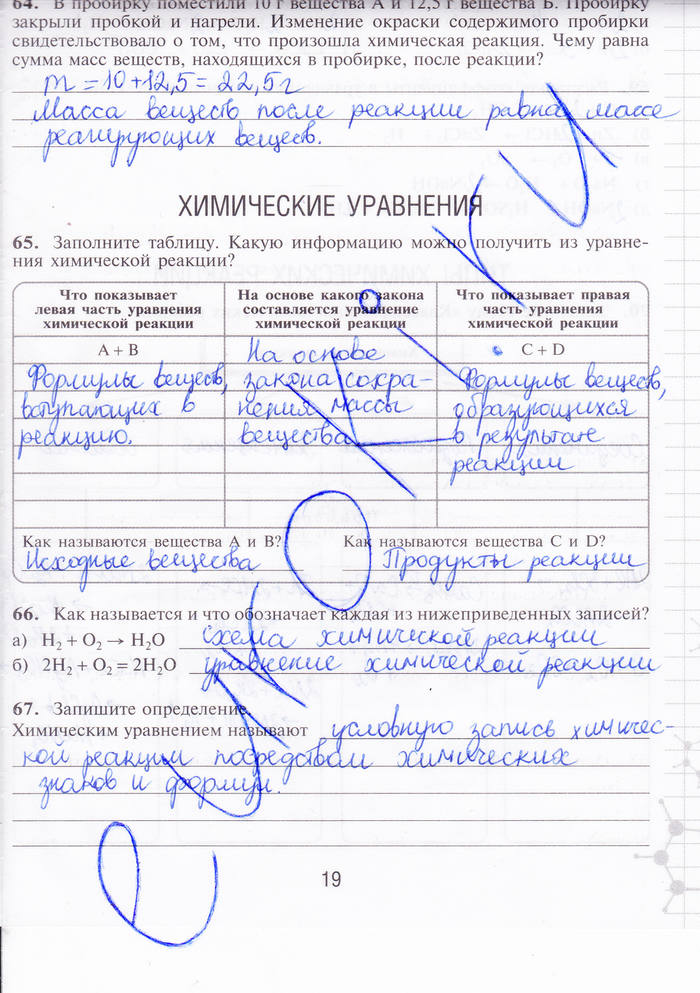 64. В пробирку поместили 10 г вещества А и 12,5 г вещества Б. Пробирку
закрыли пробкой и нагрели. Изменение окраски содержимого пробирки
свидетельствовало о том, что произошла химическая реакция. Чему равна
сумма масс веществ, находящихся в пробирке, после реакции?
m = 10 + 12,5 = 22,5 г
Масса веществ после реакции равна массе
реагирующих веществ.
ХИМИЧЕСКИЕ УРАВНЕНИЯ
65. Заполните таблицу. Какую информацию можно получить из уравне-
ния химической реакции?
Что показывает
левая часть уравнения
химической реакции
На основе какого закона
составляется уравнение
химической реакции
Что показывает правая
часть уравнения
химической реакции
A + B
Формулы веществ,
вступающих в
реакцию.
На основе
закона сохра-
нения массы
вещества
C + D
Формулы веществ,
образующихся
в результате
реакции
Как называются вещества А и В?
Исходные вещества
Как называются вещества С и D?
Продукты реакции
66. Как называется и что обозначает каждая из нижеприведенных записей?
а) H₂ + O₂ → H₂O схема химической реакции
б) 2H₂ + O₂ = 2H₂O уравнение химической реакции
67. Запишите определение.
Химическим уравнением называют условную запись химичес-
кой реакции посредством химических
знаков и формул.
19